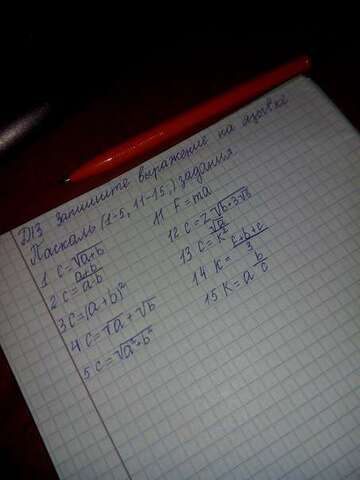 D/З Запишите выражение на языке
Паскаль (1-5, 11-15,) задания
1 C = √a+b
2 C = a+b/a-b
3 C = (a+b)²
4 C = √a + √b
5 C = √a²+b²
11 F = ma
12 C = 2√b+3√b
13 C = √a/K²
14 K = c+b+c/3
15 K = a b/c